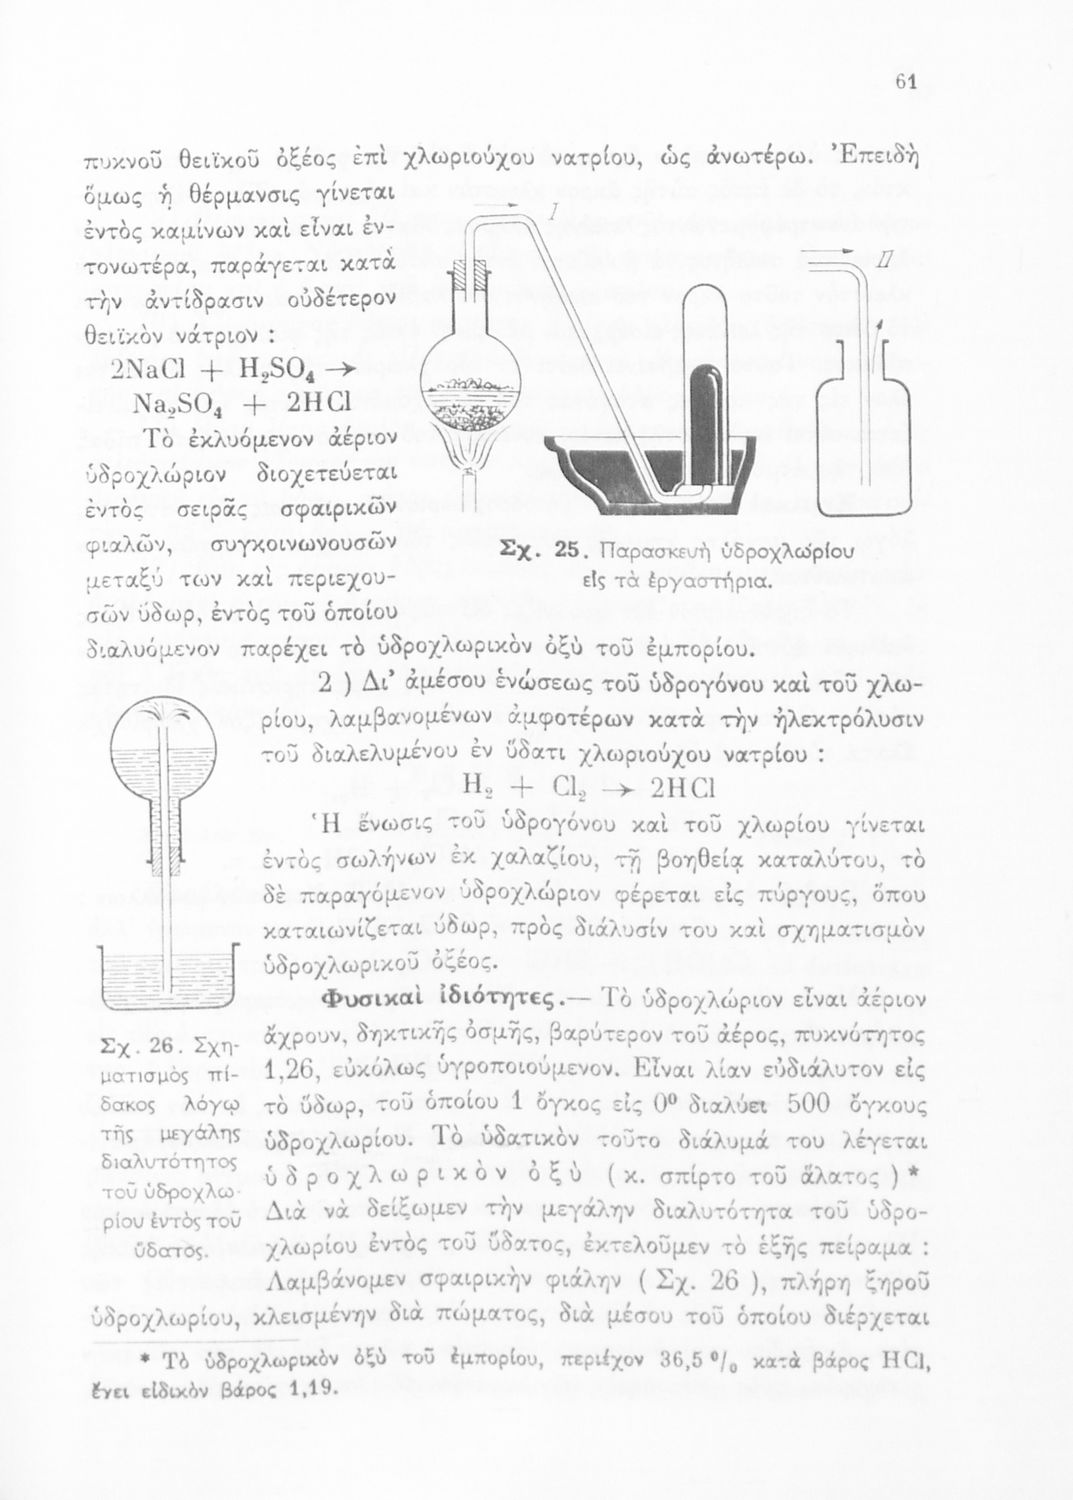 61
πυκνοῦ θειϊκοῦ ὀξέος ἐπὶ χλωριούχου νατρίου, ὡς ἀνωτέρω. Ἐπειδὴ
ὅμως ἡ θέρμανσις γίνεται
ἐντὸς καμίνων καὶ εἶναι ἐν-
τονωτέρα, παράγεται κατὰ
τὴν ἀντίδρασιν οὐδέτερον
θειϊκὸν νάτριον :
2NaCl + H₂SO₄ →
Na₂SO₄ + 2HCl
Τὸ ἐκλυόμενον ἀέριον
ὑδροχλώριον διοχετεύεται
ἐντὸς σειρᾶς σφαιρικῶν
φιαλῶν, συγκοινωνουσῶν
μεταξύ των καὶ περιεχου-
σῶν ὕδωρ, ἐντὸς τοῦ ὁποίου
I
II
Σχ. 25. Παρασκευὴ ὑδροχλωρίου
εἰς τὰ ἐργαστήρια.
διαλυόμενον παρέχει τὸ ὑδροχλωρικὸν ὀξὺ τοῦ ἐμπορίου.
2 ) Δι’ ἀμέσου ἑνώσεως τοῦ ὑδρογόνου καὶ τοῦ χλω-
ρίου, λαμβανομένων ἀμφοτέρων κατὰ τὴν ἠλεκτρόλυσιν
τοῦ διαλελυμένου ἐν ὕδατι χλωριούχου νατρίου :
H₂ + Cl₂ → 2HCl
Ἡ ἕνωσις τοῦ ὑδρογόνου καὶ τοῦ χλωρίου γίνεται
ἐντὸς σωλήνων ἐκ χαλαζίου, τῇ βοηθείᾳ καταλύτου, τὸ
δὲ παραγόμενον ὑδροχλώριον φέρεται εἰς πύργους, ὅπου
καταιωνίζεται ὕδωρ, πρὸς διάλυσίν του καὶ σχηματισμὸν
ὑδροχλωρικοῦ ὀξέος.
Φυσικαὶ ἰδιότητες.— Τὸ ὑδροχλώριον εἶναι ἀέριον
ἄχρουν, δηκτικῆς ὀσμῆς, βαρύτερον τοῦ ἀέρος, πυκνότητος
1,26, εὐκόλως ὑγροποιούμενον. Εἶναι λίαν εὐδιάλυτον εἰς
τὸ ὕδωρ, τοῦ ὁποίου 1 ὄγκος εἰς 0⁰ διαλύει 500 ὄγκους
ὑδροχλωρίου. Τὸ ὑδατικὸν τοῦτο διάλυμά του λέγεται
ὑδροχλωρικὸν ὀξὺ ( κ. σπίρτο τοῦ ἅλατος ) *
Διὰ νὰ δείξωμεν τὴν μεγάλην διαλυτότητα τοῦ ὑδρο-
χλωρίου ἐντὸς τοῦ ὕδατος, ἐκτελοῦμεν τὸ ἑξῆς πείραμα :
Λαμβάνομεν σφαιρικὴν φιάλην ( Σχ. 26 ), πλήρη ξηροῦ
Σχ. 26. Σχη-
ματισμὸς πί-
δακος λόγῳ
τῆς μεγάλης
διαλυτότητος
τοῦ ὑδροχλω-
ρίου ἐντὸς τοῦ
ὕδατος.
ὑδροχλωρίου, κλεισμένην διὰ πώματος, διὰ μέσου τοῦ ὁποίου διέρχεται
* Τὸ ὑδροχλωρικὸν ὀξὺ τοῦ ἐμπορίου, περιέχον 36,5 ⁰/₀ κατὰ βάρος HCl,
ἔχει εἰδικὸν βάρος 1,19.